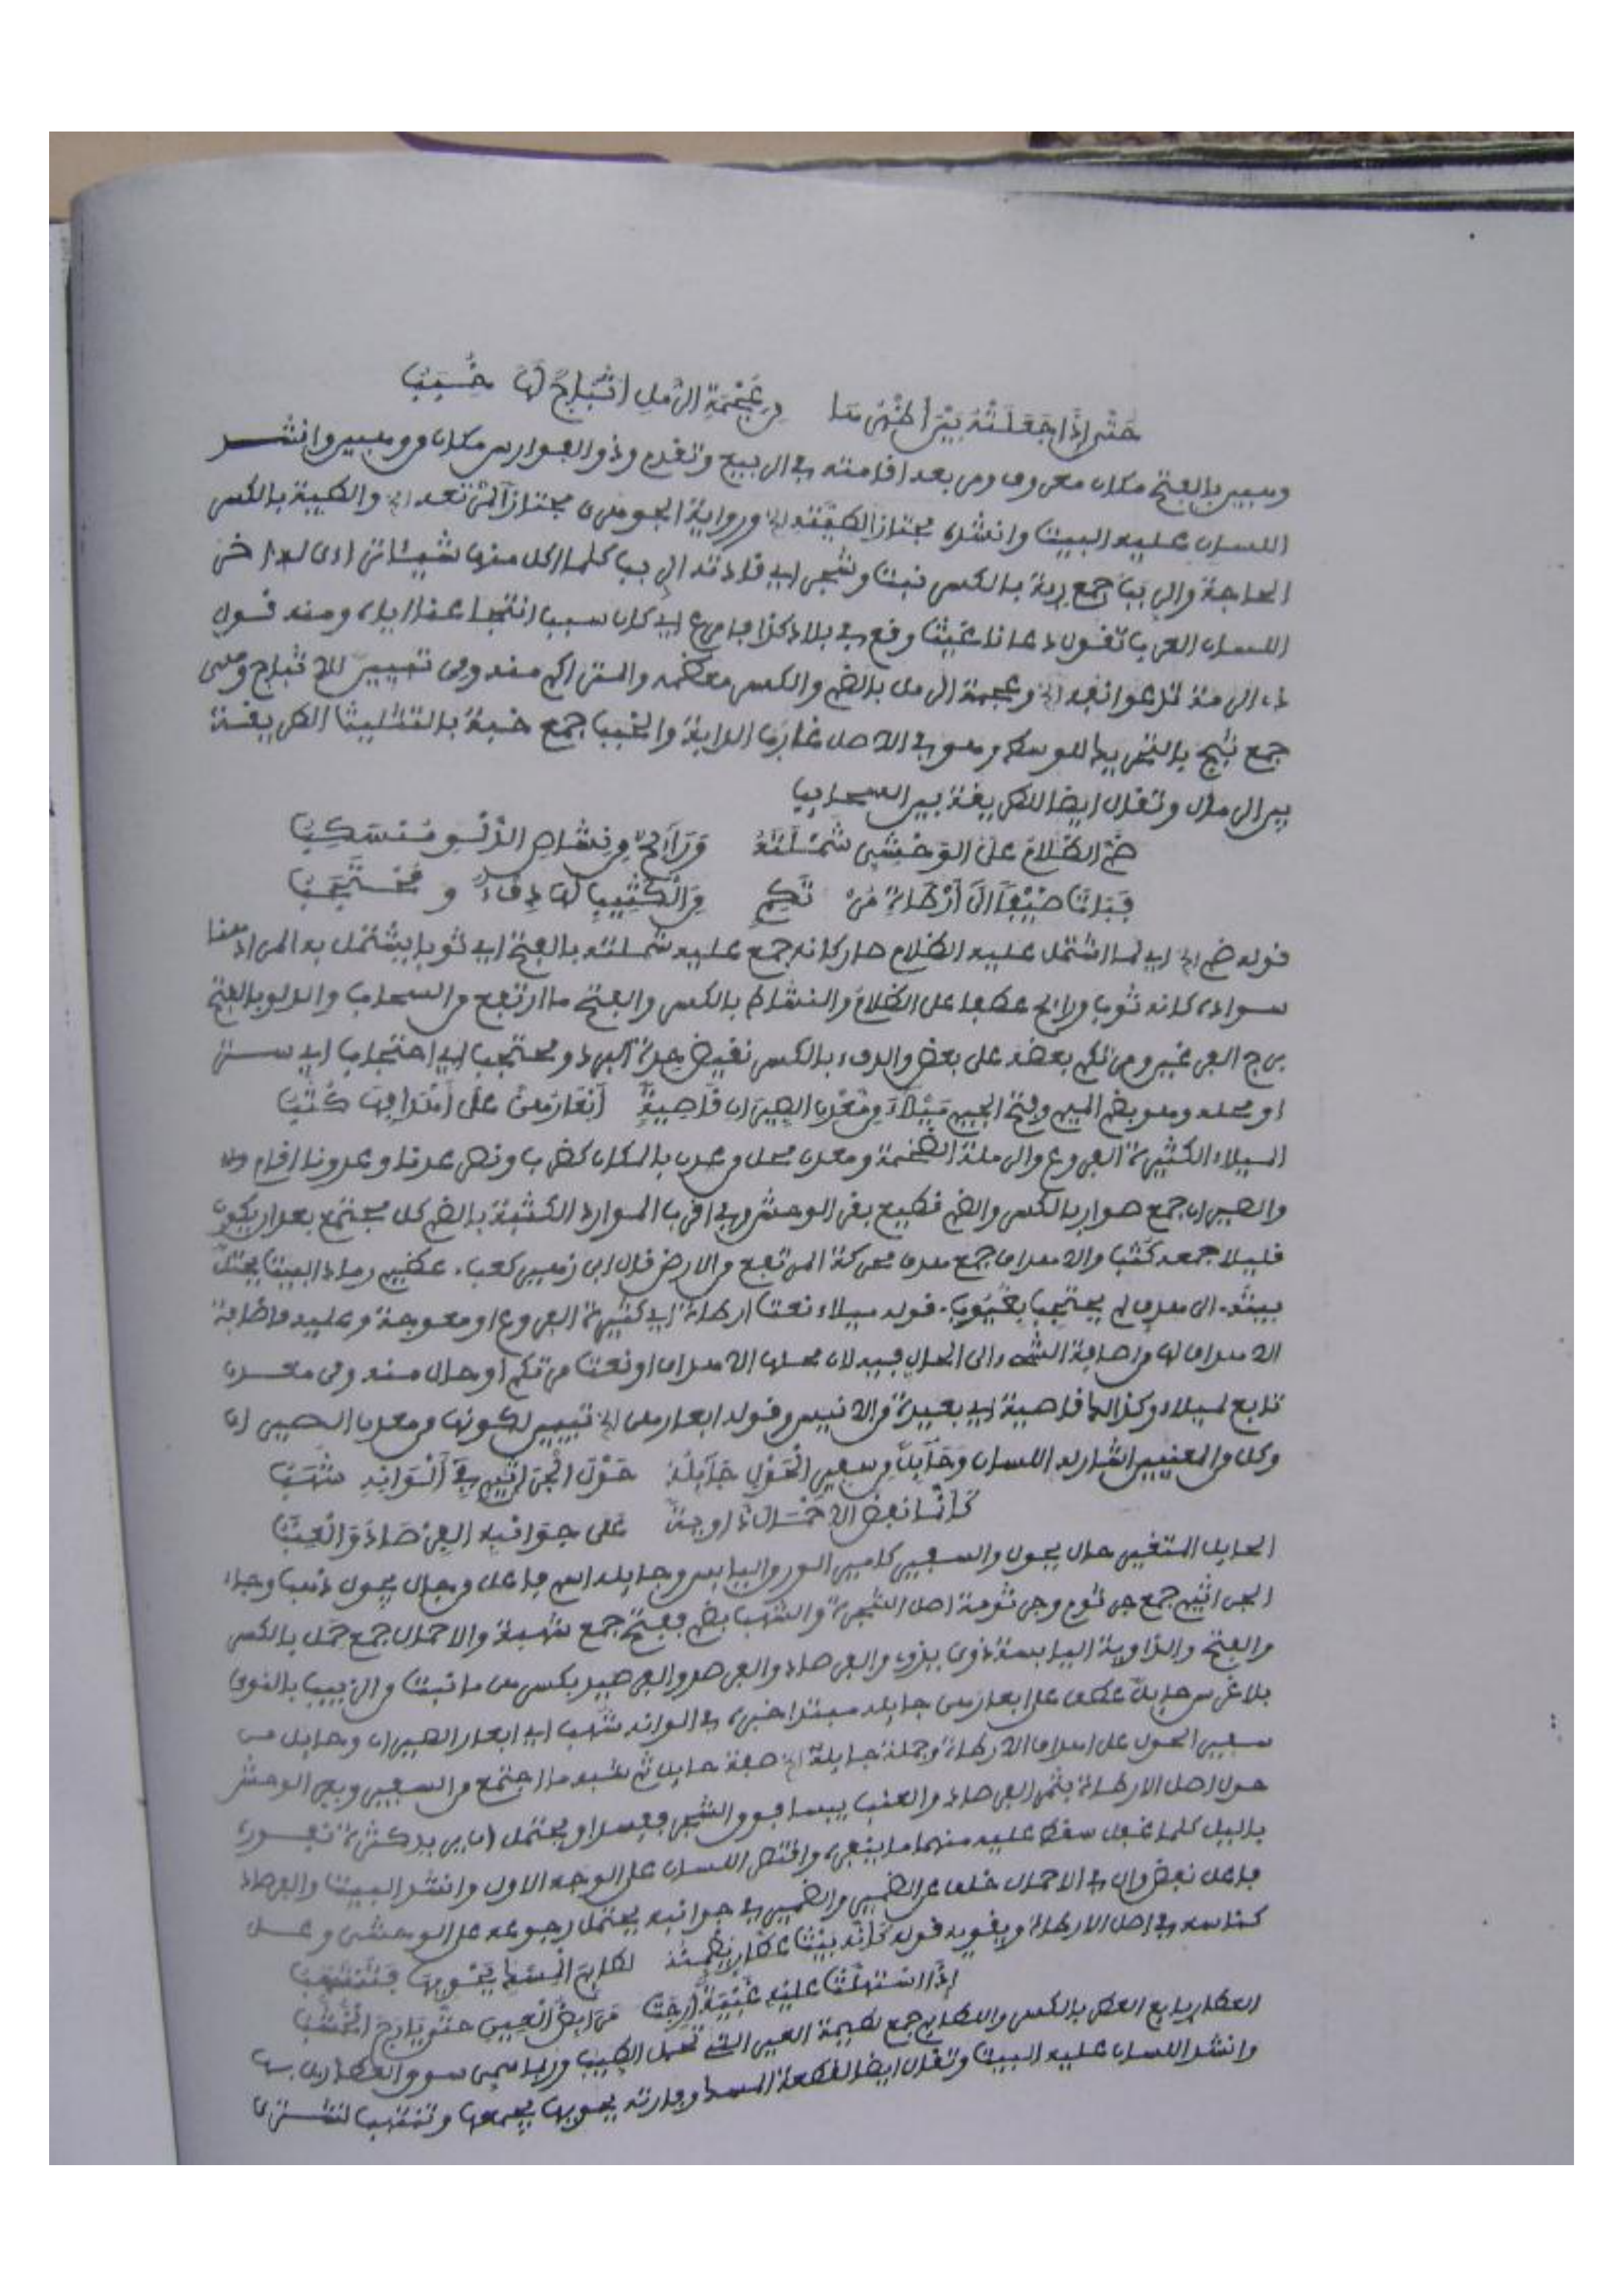 حَتَّى إِذَا جَعَلَتْهُ بَيْنَ أَظْهُرِهَا مِن عُجْمَةِ الرَّمْلِ أَثْبَاجٌ لَهَا خُبَبُ
وهبين بالفتح مكان معروف ومن بعد اقامته في الربيع وتقدم وذو الفوارس مكان ووهبين وانشد
اللسان عليه البيت وانشده مجتازا لطيته الخ ورواية الجوهري مجتازا لمرتعه الخ والطية بالكسر
الحاجة والربب جمع ربة بالكسر نبت وشجر اي قادته الربب كلما اكل منها شيئا تراءى له اخر
اللسان العرب تقول دعانا غيث وقع في بلاد كذا فامرع اي كان سبب انتجاعنا اياه ومنه قول
ذي الرمة تدعو انفه الخ وعجمة الرمل بالضم والكسر معظمه والمتراكم منه ومن تبيين للاثباج وهي
جمع ثبج بالتحريك للوسط وهو في الاصل غارب الدابة والخبب جمع خبة بالتثليث الطريقة
بين الرمال وتقال ايضا للطريقة بين السحاب
ضَمَّ الظَّلَامُ عَلَى الوَحْشِيِّ شَمْلَتَهُ وَرَائِحٌ مِن نَشَاصِ الدَّلْوِ مُنْسَكِبُ
فَبَاتَ ضَيْفًا إِلَى أَرْطَاةِ مُرْتَكِمٍ مِنَ الْكَثِيبِ لَهَا دِفْءٌ وَمُحْتَجَبُ
قوله ضم الخ اي لما اشتمل عليه الظلام صار كانه جمع عليه شملته بالفتح اي ثوبا يشتمل به المراد هنا
سواده كانه ثوب ورائح عطف على الظلام والنشاص بالكسر والفتح ما ارتفع من السحاب والدلو بالفتح
برج الفرغين ومرتكم بعضه على بعض والدفء بالكسر نقيض حدة البرد ومحتجب اي احتجاب اي ستر
او محله وهو بضم الميم وفتح الجيم مَيْلَاءَ مِن مَعْدِنِ الصِّيرَانِ قَاصِيَةٍ أَبْعَارُهُنَّ عَلَى أَهْدَافِهَا كُثَبُ
الميلاء الكثيرة الفروع والرملة الضخمة ومعدن محل وعدن بالمكان كضرب ونصر عدنا وعدونا اقام
والصيران جمع صوار بالكسر والضم قطيع بقر الوحش وفي اقرب الموارد الكثبة بالضم كل مجتمع بعد ان يكون
قليلا جمعه كثب والاهداف جمع هدف محركة المرتفع من الارض قال ابن زهير كعب. عظيم رماد البيت يحتل
بيته. الى هدف لم يحتجب بغيوب. قوله ميلاء نعت ارطاة اي كثيرة الفروع او معوجة وعليه فاضافة
الاهداف لها من اضافة الشيء الى الحال فيه لان محلها الاهداف او نعت مرتكم او حال منه ومن معدن
تابع لميلاء وكذا الخ قاصية اي بعيدة من الانيس وقوله ابعارهن الخ تبيين لكونها من معدن الصيران
وكل من المعنيين اشار له اللسان وَحَائِلٌ مِن سَفِيرِ الْحَوْلِ جَائِلُهُ حَوْلَ الْجَرَاثِيمِ فِي أَلْوَانِهِ شَهَبُ
كَأَنَّمَا نَفَضَ الأَحْمَالَ ذَاوِيَةً عَلَى جَوَانِبِهِ الْفِرْصَادُ وَالْعِنَبُ
الحايل المتغير حال يحول والسفير كامير الورق اليابس وجايله اسم فاعل من جال يجول ذهب وجاء
الجراثيم جمع جرثوم وجرثومة اصل الشجرة والشهب بضم ففتح جمع شهبة والاحمال جمع حمل بالكسر
والفتح والذاوية اليابسة ذوى يذوي والفرصاد والفرصد والفرصيد بكسرهن ما نبت من الزبيب بالنوى
بلا غرس حايل عطف على ابعارهن جايله مبتدا خبره في الوانه شهب اي ابعار الصيران وحايل من
سفير الحول على اهداف الارطاة وجملة جايله الخ صفة حايل ثم شبه ما اجتمع من السفير وبعر الوحش
حول اصل الارطاة بثمر الفرصاد والعنب يبسا فوق الشجر فقسرا ويحتمل ان يريد كثرة تغوره
بالليل كلما غفل سقط عليه منهما ما ينفره واقتصر اللسان على الوجه الاول وانشد البيت والفرصاد
فاعل نفض وال في الاحمال خلف عن الضمير والضمير في جوانبه يحتمل رجوعه على الوحشي وعلى
كناسه في اصل الارطاة ويقويه قوله كَأَنَّهُ بَيْتُ عَطَّارٍ يُضَمِّنُهُ لَطَائِمَ الْمِسْكِ يَحْوِيهَا وَتُنْتَهَبُ
إِذَا اسْتَهَلَّتْ عَلَيْهِ غَبْيَةٌ أَرِجَتْ مَرَابِضُ الْعِينِ حَتَّى يَأْرَجَ الْخَشَبُ
العطار بايع العطر بالكسر واللطايم جمع لطيمة العير التي تحمل الطيب وربما سمي سوق العطارين بها
وانشد اللسان عليه البيت وتقال ايضا لقطعة المسك وفارته يحويها يجمعها وتنتهب تشترى